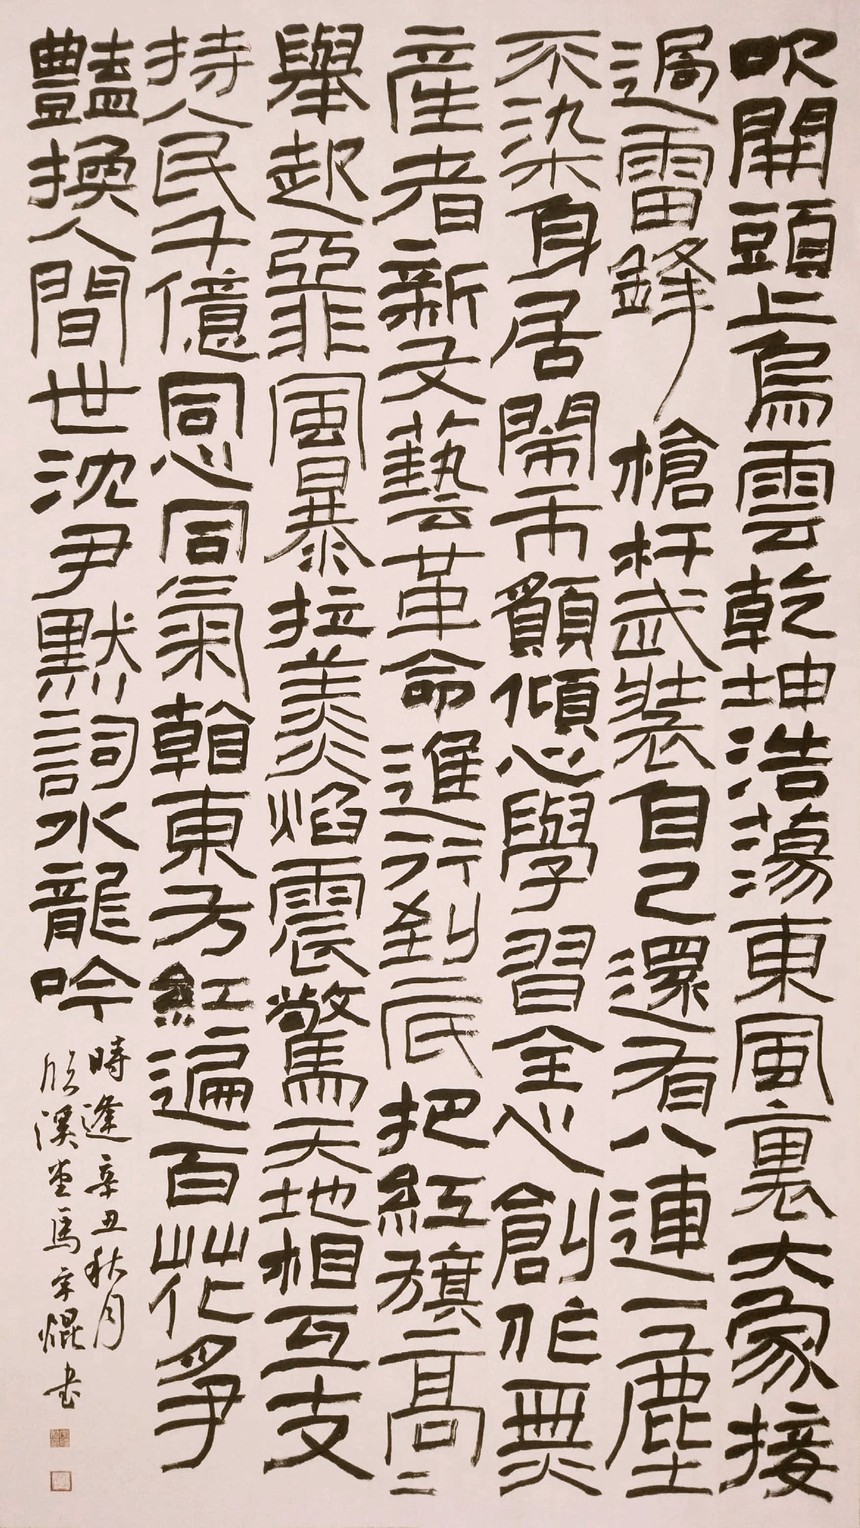 吹開頭上烏雲乾坤浩蕩東風裏大家接
過雷鋒槍杆武裝自己還有八連一塵
不染身居鬧市願傾心學習全心創作無
產者新文藝革命進行到底把紅旗高高
舉起亞非風暴拉美炎焰震驚天地相互支
持人民千億同心同氣看東方紅遍百花爭
豔換人間世沈尹默詞水龍吟
時逢辛丑秋月
欣溪堂馬宗焜書